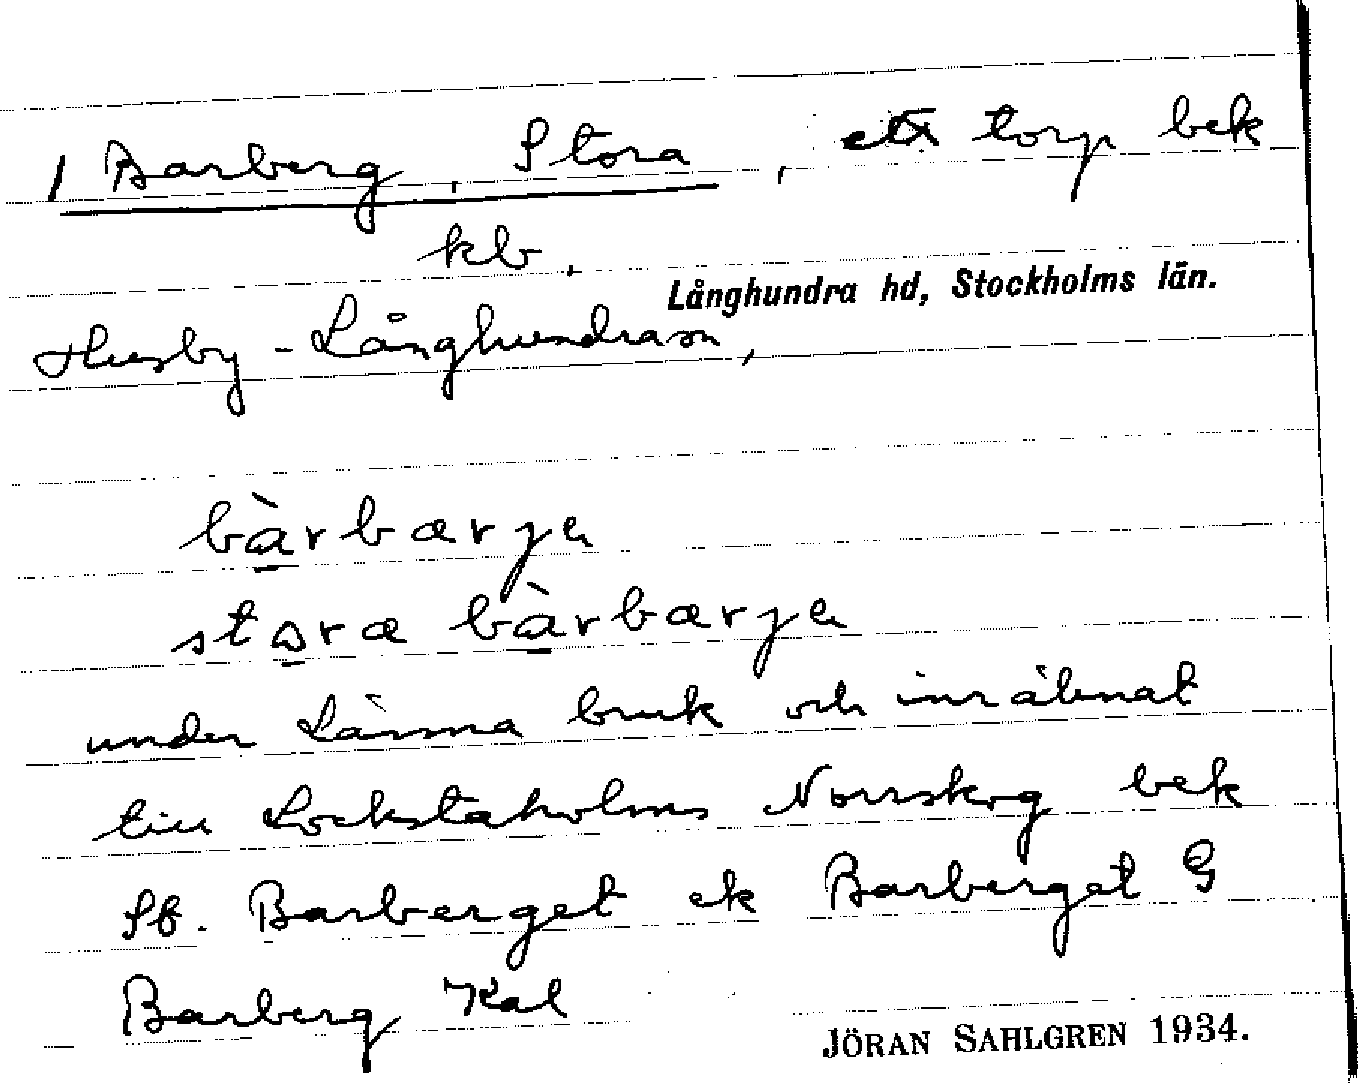 1 Barberg, Stora, ett torp bek
kb.
Långhundra hd, Stockholms län.
Husby-Långhundrasn,
bàrbærjæ
stora bàrbærjæ
under Länna bruk och inräknat
till Lockstaholms Norrskog bek
Sf. Barberget ek Barberget G
Barberg Kal
JÖRAN SAHLGREN 1934.